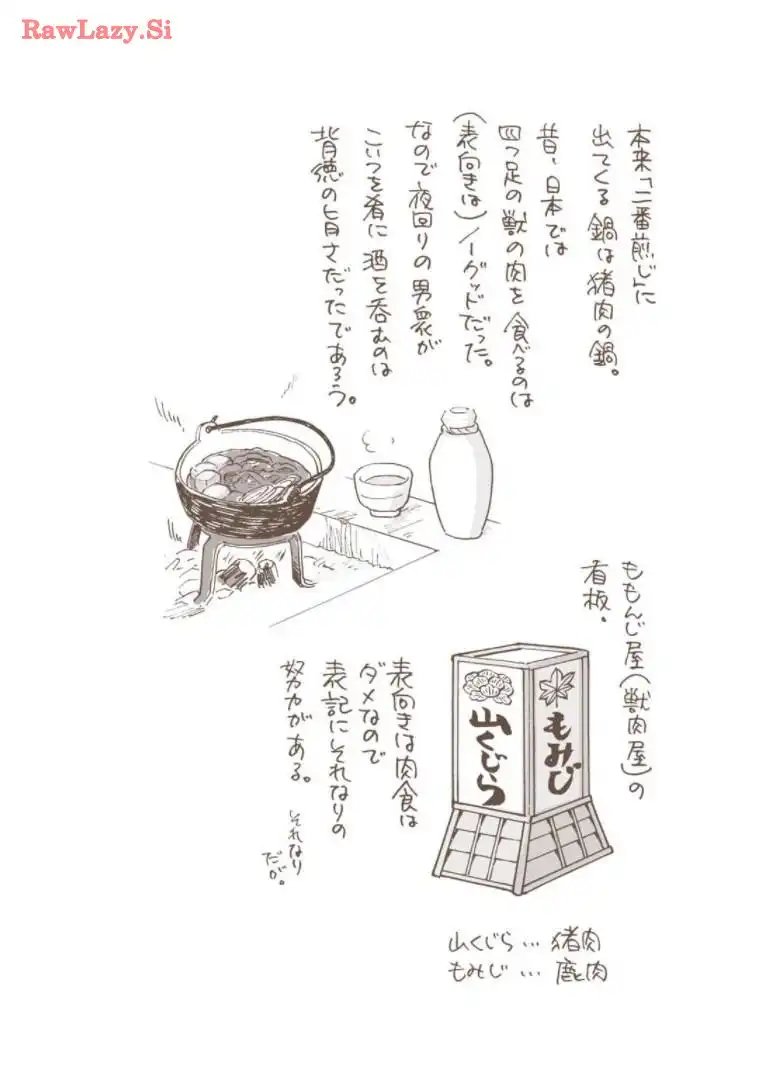 RawLazy.Si
本来「二番煎じ」に
出てくる鍋は猪肉の鍋。
昔、日本では
四つ足の獣の肉を食べるのは
(表向きは)ノーグッドだった。
なので夜回りの男衆が
こいつを肴に酒を呑むのは
背徳の旨さだったであろう。
ももんじ屋(獣肉屋)の
看板。
もみじ
山くじら
表向きは肉食は
ダメなので
表記にそれなりの
努力がある。
それなり
だが。
山くじら…猪肉
もみじ…鹿肉